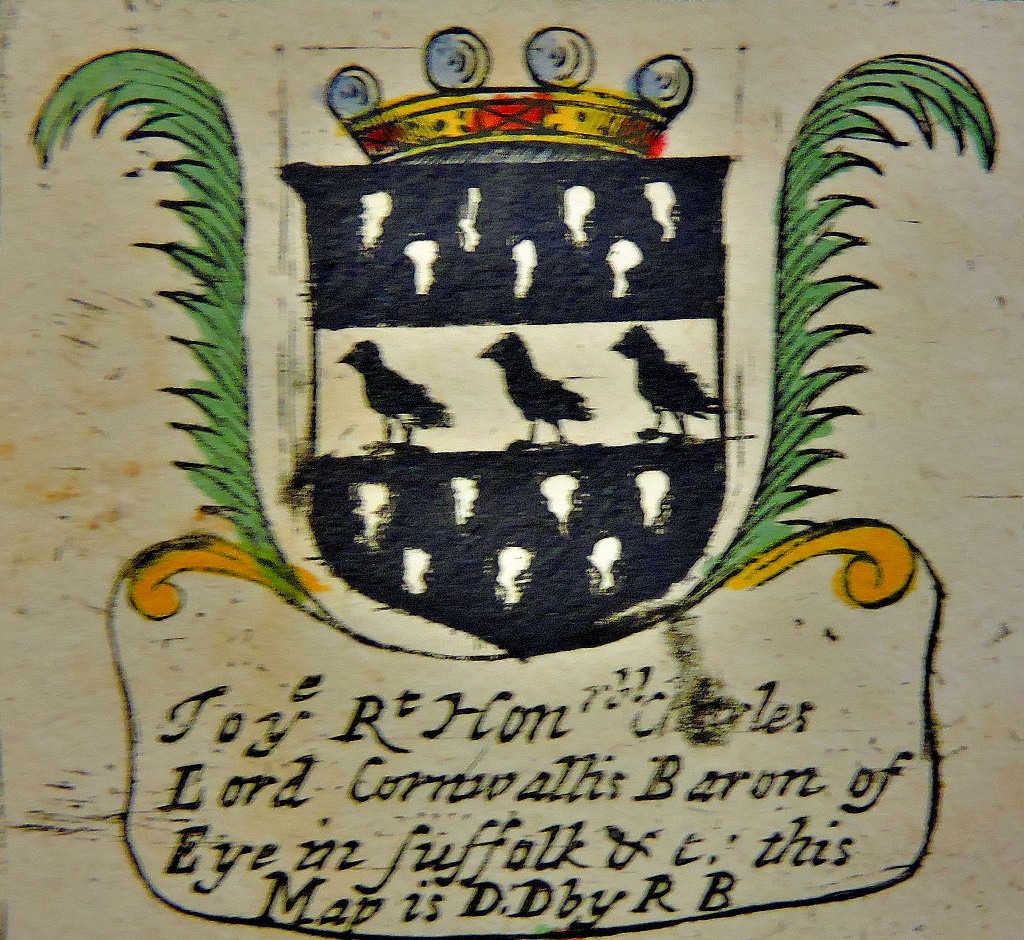 To yᵉ Rᵗ Honʳˡˡ Charles
Lord Cornwallis Baron of
Eye in suffolk & c: this
Map is D.D by R B